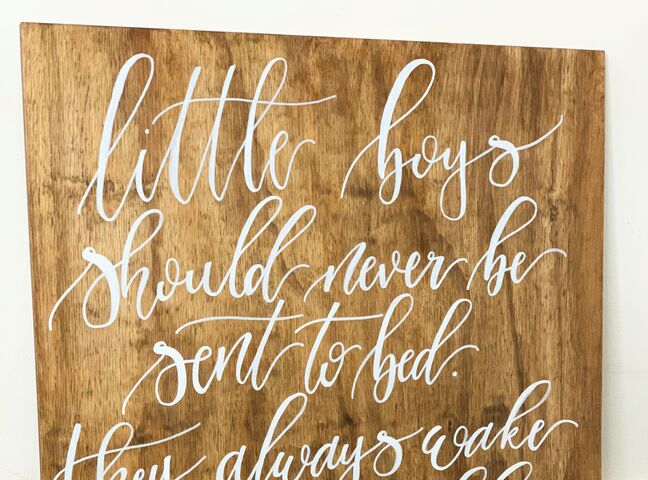 little boys
should never be
sent to bed.
they always wake